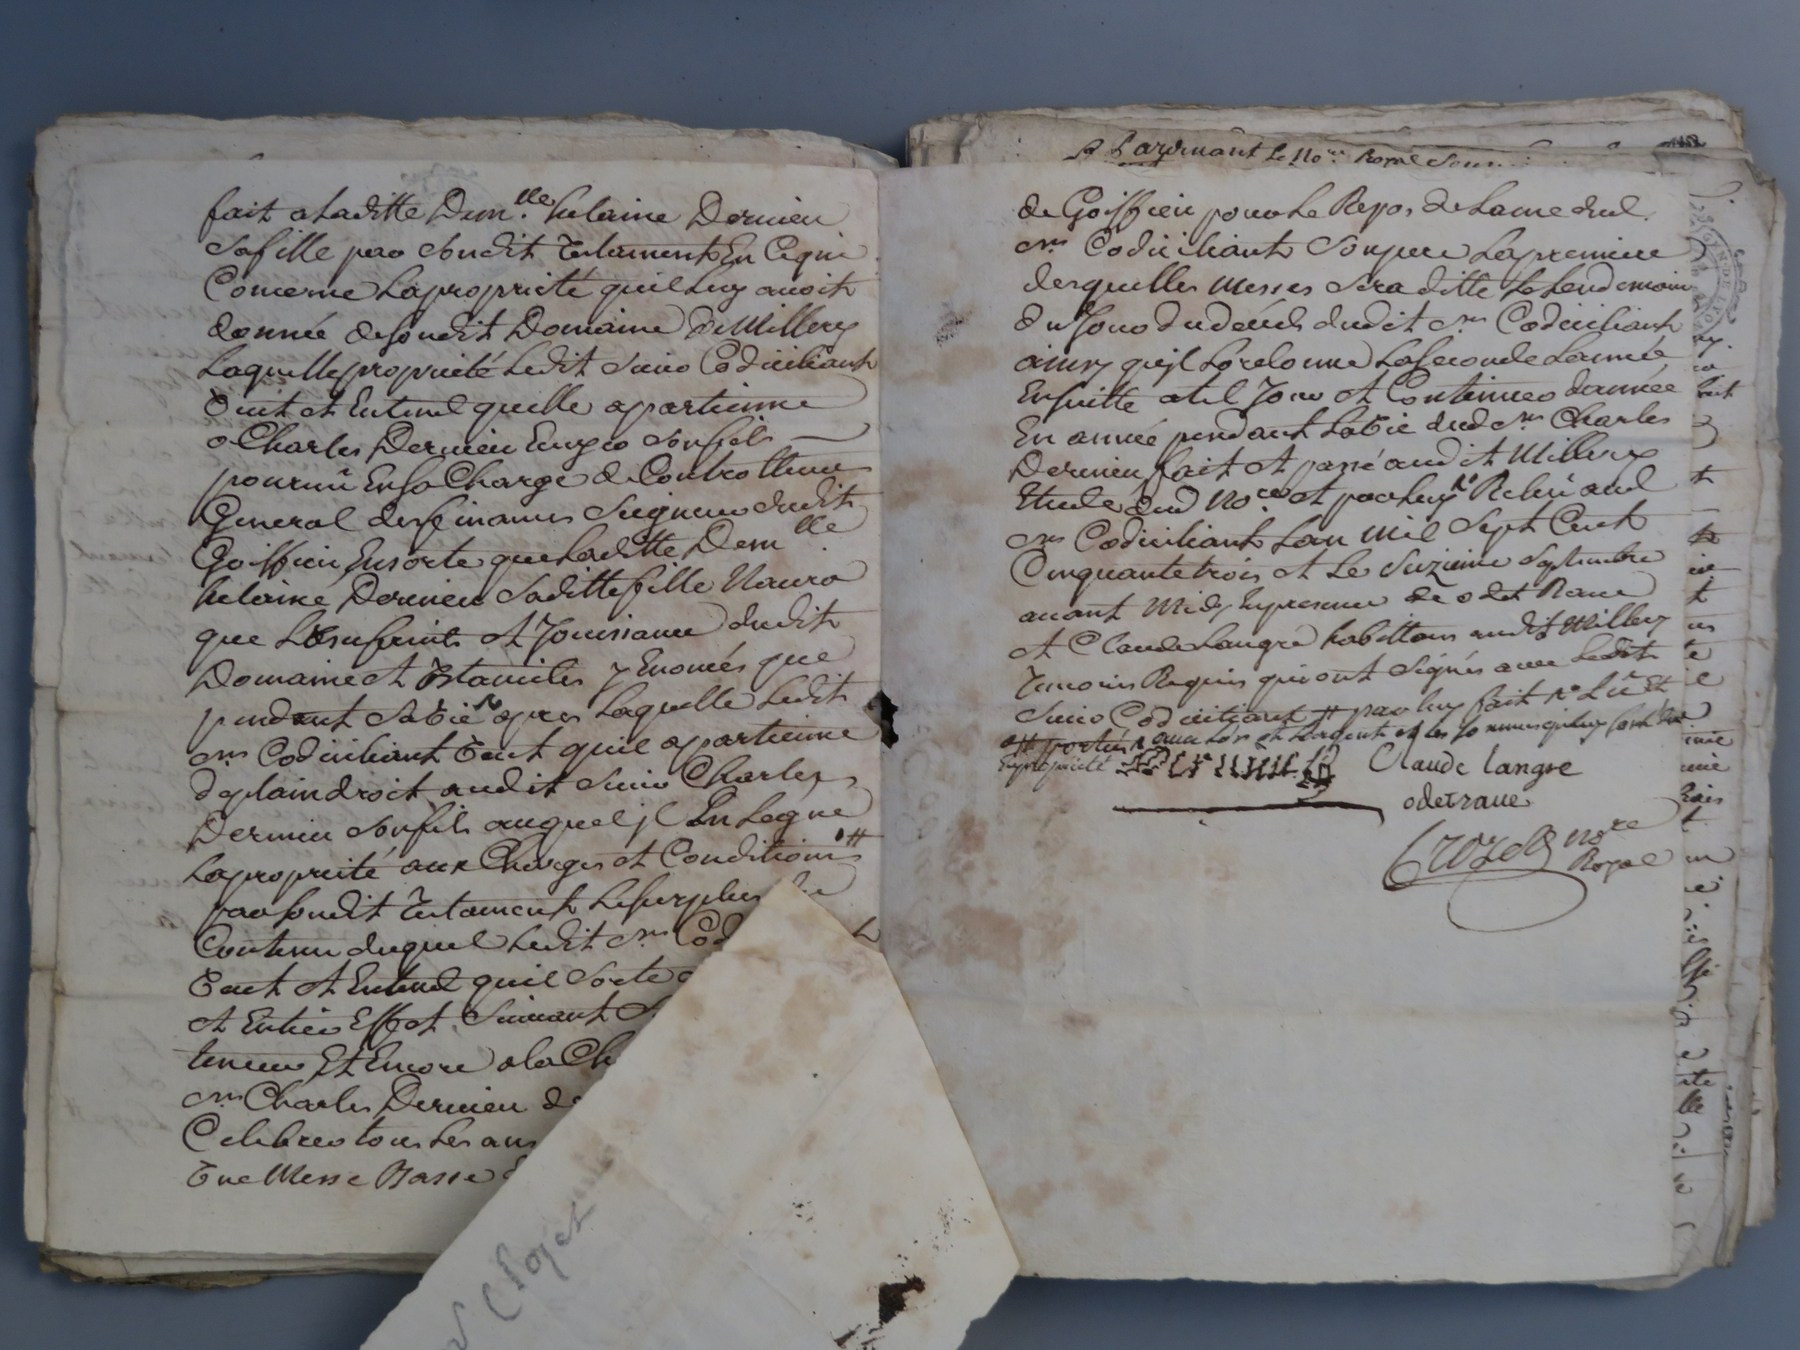 fait a Laditte Dem.lle helaine Dervieu
Sa fille par Sondit Testament En Cequi
Concerne La proprieté quil Luy avoit
donnée desondit Domaine De Millery
Laquelle proprieté Ledit Sieur Codiciliant
Veut et Entend quelle apartienne
a Charles Dervieu Ecuyer Son fils
pourvû En sa Charge de Controlleur
General des finances Seigneur dudit
Goiffieu Ensorte que Laditte Dem.lle
helaine Dervieu Saditte fille Naura
que Lusufruit et Jouissance dudit
Domaine et Ustanciles y Enoncés que
pendant Sa Vie apres Laquelle Ledit
Sr. Codiciliant Veut quil apartienne
de plain droit audit Sieur Charles
Dervieu Son fils auquel jl En Legue
La proprieté aux Charges et Conditions #
par Sondit Testament Le surplus du
Contenu duquel Ledit Sr. Cod
Veut et Entend quil Sorte
et Entier Effet Suivant S
teneur Et Encore a la Ch
Sr. Charles Dervieu de
Celebrer tous Les ans
Une Messe Basse
Clojet
Royal
de Goiffieu pour Le Repos de Lame dud.
Sr. Codiciliant Son pere La premiere
desquelles Messes Sera ditte Le Lendemain
du Jour du decés dudit Sr. Codiciliant
ainsy quil Lordonne La Seconde Lannée
Ensuitte a tel Jour et Continuer dannée
En année pendant La Vie dud. Sr. Charles
Dervieu, fait et passé audit Millery
Etude dud. No.re et par Luy Relû aud.
Sr. Codiciliant Lan Mil Sept Cent
Cinquante trois et Le Seizieme Septembre
avant Midy En presence de odet Rave
et Claude Langre habittans audit Millery
Temoins Requis qui ont Signés avec Ledit
Sieur Codiciliant # par Luy fait
Enproprieté
Claude langre
odet rave
Crozet No.re
Royal